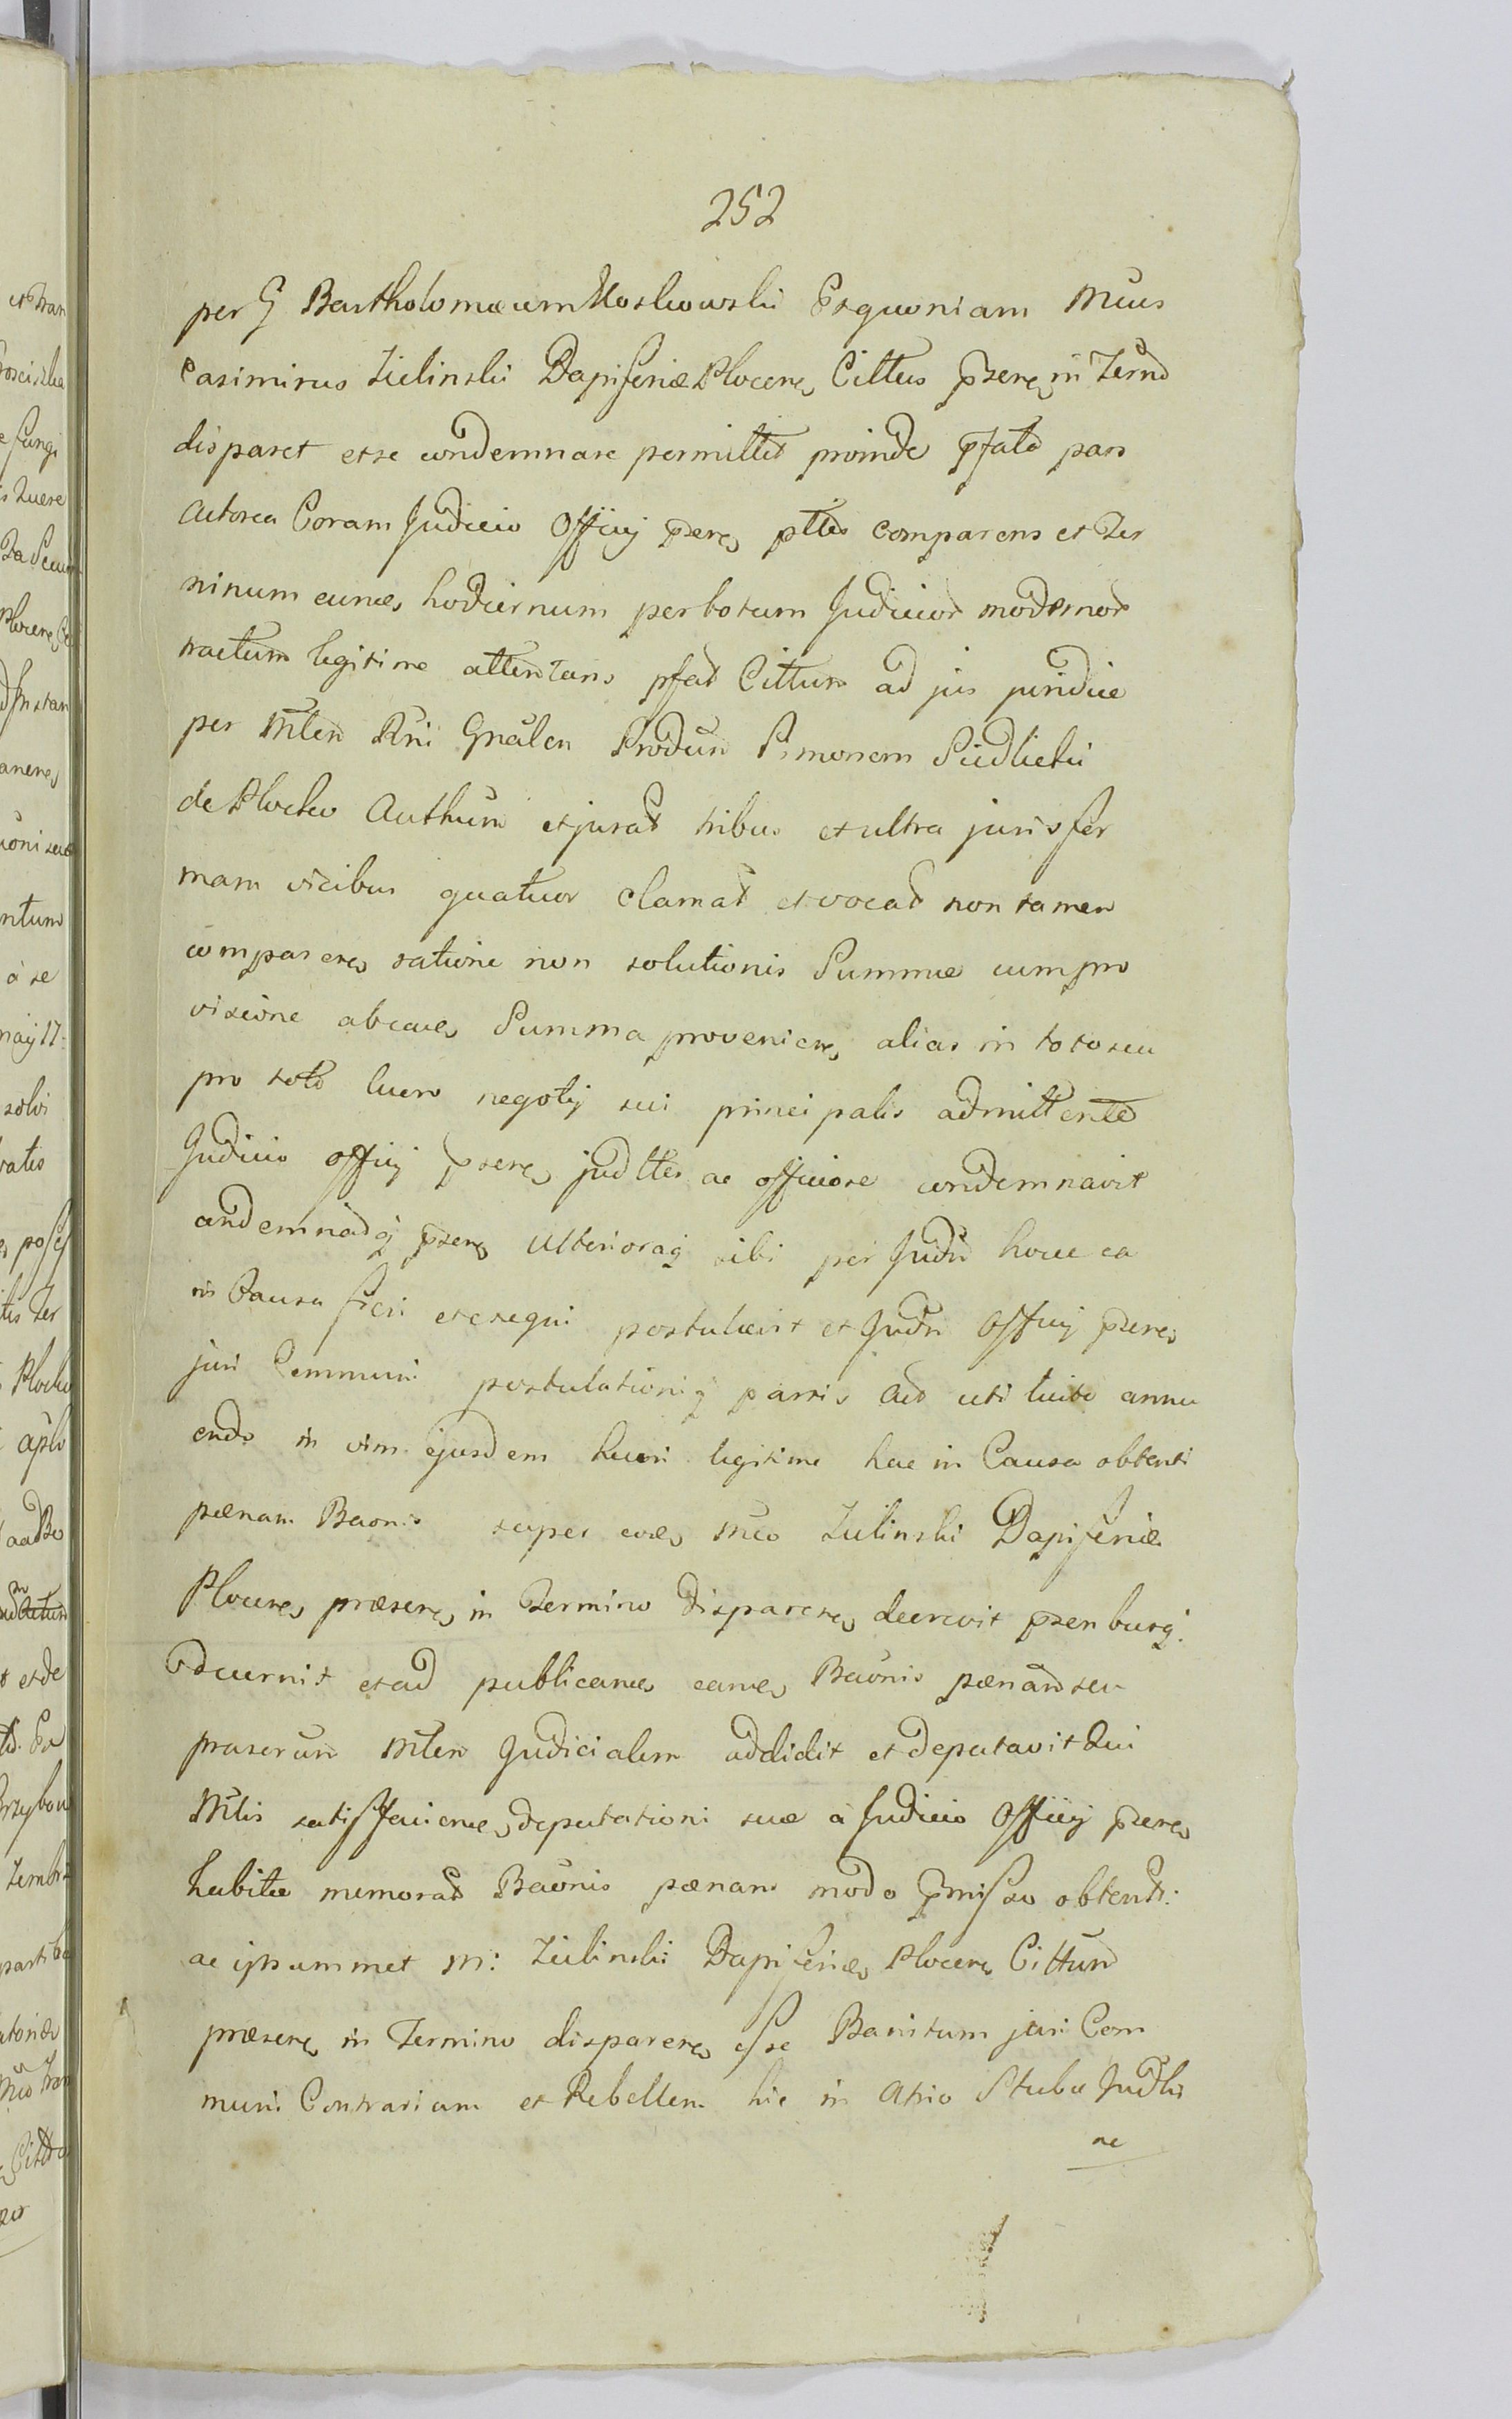 252
per G Bartholomæum Koskowski Exquoniam Mcus
Casimirus Zielinski Dapiferiæ Plocen, Cittus pser, in Termo
disparet et se condemnare permittit proinde pfata pars
actorea Coram Judicio Offij pser, ptlis comparens et Ter
ninum eunde, hodiernum per totum Judicior modernor
tractum legitime attentans pfat Cittum ad jus juridice
per Mlem Rni Gnalen Prodūn Simonem Siedlicki
de Plocko Authūm et jurat tribus et ultra juris for
mam vicibus quatuor clamat et vocat non tamen
comparen, ratione non solutionis Summæ cum pro
visione ab eade, Summa provenien, alias in toto seu
pro toto lucro negotij sui principalis admittente
Judicio offij pser, judtter ac officiose condemnavit
condemnatq pser, ulterioraq sibi per Judm hocce ea
in Causa fieri et exequi postulavit et Judm Offij pser,
juri Communi postulationiq partis act uti licite annu
endo in vim ejusdem lucri legitime hac in Causa obtenti
pænam Baonis super eode, Mco Zielinski Dapiferiæ
Plocen, præsen, in Termino disparen, decrevit psen burg:
decernit et ad publicand, eand, Baonis pænam seu
præserun Mlem Judicialem addidit et deputavit Qui
Mlis satisfaciend, deputationi suæ a Judicio Offij pser,
habitæ memorat Baonis pænam modo pmisso obtent:
ac ipsummet M: Zielinski Dapiferiæ, Plocen, Cittum
præsen, in Termino disparen, esse Banitum juri Com
muni Contrarium et Rebellem hic in Atrio Stubæ Judlis
ac